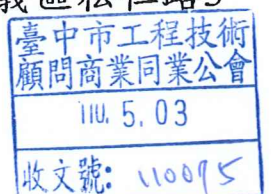 義區松仁路5
臺中市工程技術
顧問商業同業公會
110. 5. 03
收文號: 110095